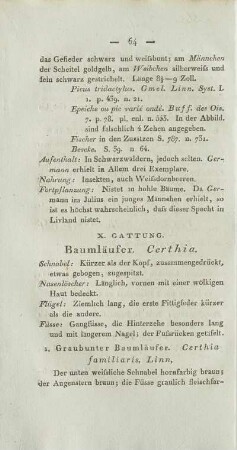 — 64 —
das Gefieder schwarz und weißbunt; am Männchen
der Scheitel goldgelb, am Weibchen silberweiß und
fein schwarz gestrichelt. Länge 8½—9 Zoll.
Picus tridactylus. Gmel. Linn. Syst. I.
1. p. 439. n. 21.
Epeiche ou pic varié ondé. Buff. des Ois.
7. p. 78. pl. enl. n. 553. In der Abbild.
sind fälschlich 4 Zehen angegeben.
Fischer in den Zusätzen S. 787. n. 751.
Beseke. S. 59. n. 64.
Aufenthalt: In Schwarzwäldern, jedoch selten. Ger-
mann erhielt in Allem drei Exemplare.
Nahrung: Insekten, auch Weißdornbeeren.
Fortpflanzung: Nistet in hohle Bäume. Da Ger-
mann im Julius ein junges Männchen erhielt, so
ist es höchst wahrscheinlich, daß dieser Specht in
Livland nistet.
X. GATTUNG.
Baumläufer. Certhia.
Schnabel: Kürzer als der Kopf, zusammengedrückt,
etwas gebogen, zugespitzt.
Nasenlöcher: Länglich, vornen mit einer wölkigen
Haut bedeckt.
Flügel: Ziemlich lang, die erste Fittigfeder kürzer
als die andere.
Füsse: Gangfüsse, die Hinterzehe besonders lang
und mit längerem Nagel; der Fußrücken getäfelt.
1. Graubunter Baumläufer. Certhia
familiaris. Linn.
Der unten weißliche Schnabel hornfarbig braun;
der Augenstern braun; die Füsse graulich fleischfar-